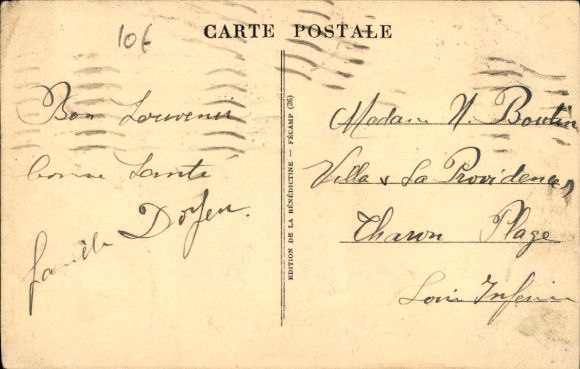 CARTE POSTALE
10€
Bon Souvenir
bonne Santé
famille Doyen.
EDITION DE LA BÉNÉDICTINE — FÉCAMP (36)
Madame N. Boutin
Villa « La Providence »
Tharon Plage
Loire Inférieure